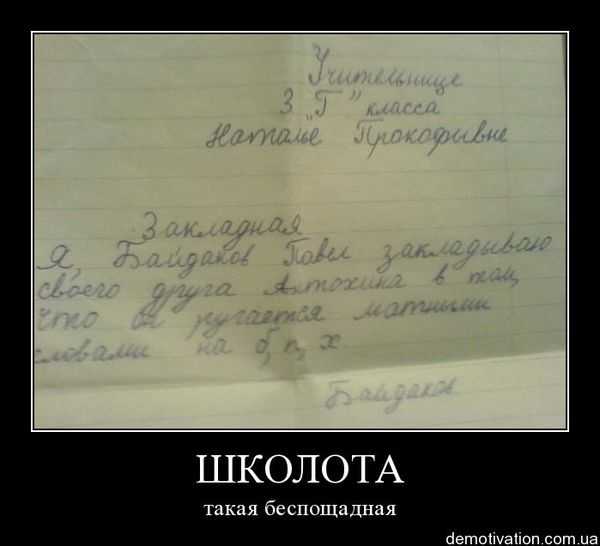 Учительнице
3 „Г" класса
Наталье Прокофивне
Закладная
Я, Байдаков Павел закладываю
своего друга Антохина в том,
что он ругается матными
словами на б, п, х
Байдаков
ШКОЛОТА
такая беспощадная
demotivation.com.ua